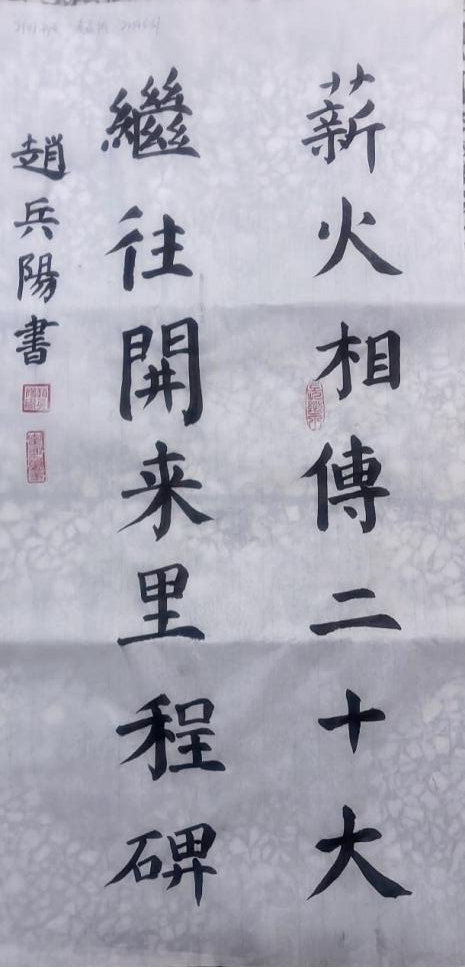 薪火相傳二十大
繼往開来里程碑
趙兵陽書